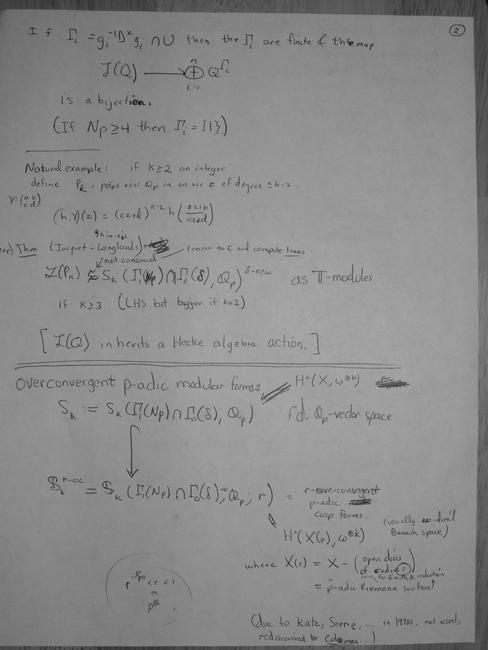 ②
If Γᵢ = gᵢ⁻¹D^× gᵢ ∩ U then the Γᵢ are finite & the map
ℒ(Q) ⟶ ⊕ Q^Γᵢ
i=1
is a bijection.
(If Np ≥ 4 then Γᵢ = {1}.)
Natural example: if k ≥ 2 an integer
define Pₖ = polys over Qp in an var z of degree ≤ k-2.
γ = (a b c d)
(h.γ)(z) = (cz+d)^k-2 h(az+b / cz+d)
Thm (Jacquet-Langlands) Shimizu transfer to C and compute traces
not canonical
ℒ(Pₖ) ≅ Sₖ(Γ₁(Np) ∩ Γ₀(δ), Qp)^δ-new as 𝕋-modules
if k ≥ 3 (LHS bit bigger if k=2)
[ℒ(Q) inherits a Hecke algebra action.]
Overconvergent p-adic modular forms: H⁰(X, ω^⊗k)
Sₖ := Sₖ(Γ₁(Np) ∩ Γ₀(δ), Qp) f.d. Qp-vector space
𝕊ₖ^r-oc = 𝕊ₖ(Γ₁(Np) ∩ Γ₀(δ); Qp; r) = r-overconvergent
p-adic
cusp forms.
H⁰(X(r), ω^⊗k) (usually ∞-dim'l
Banach space)
where X(r) = X - (open discs
of radius r
reduction)
= "p-adic Riemann surface"
(due to Katz, Serre, ... in 1970s, not used,
rediscovered by Coleman...)